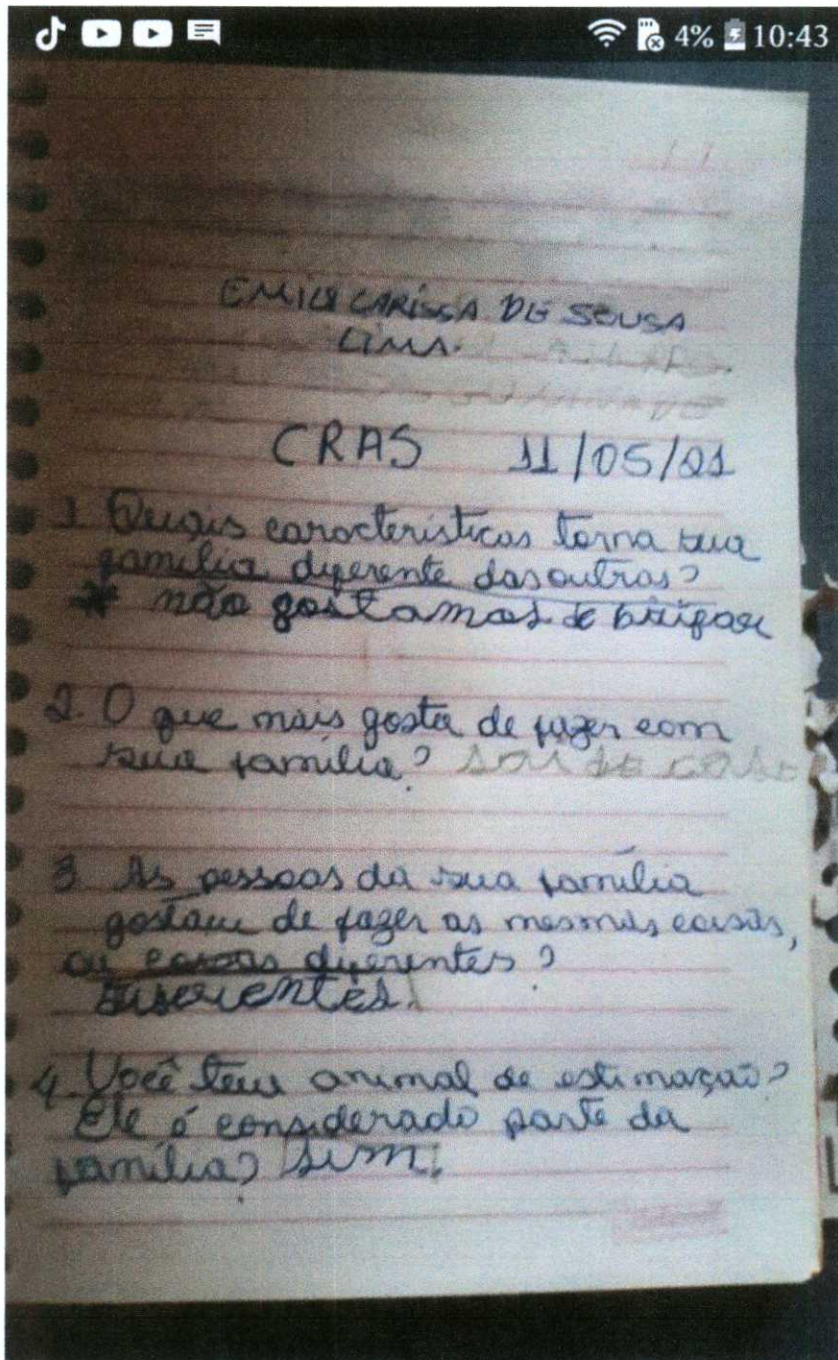 4% 10:43
EMILI CARISSA DE SOUSA
LIMA.
CRAS 11/05/21
1 Quais carocterísticas torna sua
família diferente das outras?
* não gostamos de brigar
2. O que mais gosta de fazer com
sua família? SAI DE CASA
3 As pessoas da sua família
gostam de fazer as mesmas coisas,
ou coisas diferentes?
4. Você tem animal de estimação?
Ele é considerado parte da
família? Sim.